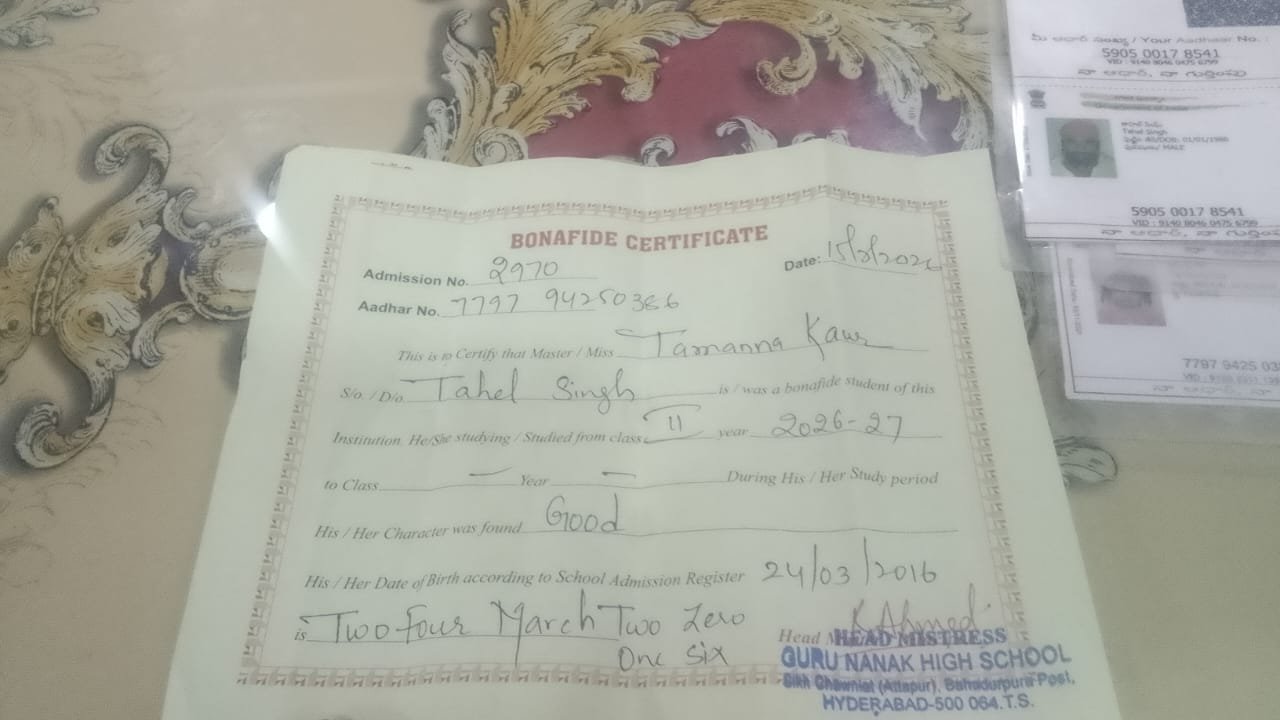 BONAFIDE CERTIFICATE
Admission No. 2970
Date: 15/3/2026
Aadhar No. 7797 94250386
This is to Certify that Master / Miss Tamanna Kaur
S/o. / D/o. Tahel Singh is / was a bonafide student of this
Institution. He/She studying / Studied from class II year 2026-27
to Class — Year — During His / Her Study period
His / Her Character was found Good
His / Her Date of Birth according to School Admission Register 24/03/2016
is Two Four March Two Zero
One Six
K Ahmed
Head
HEAD MISTRESS
GURU NANAK HIGH SCHOOL
Sikh Chawniat (Attapur), Bahadurpura Post,
HYDERABAD-500 064.T.S.
మీ ఆధార్ సంఖ్య / Your Aadhaar No. :
5905 0017 8541
VID : 9140 8046 0475 6799
నా ఆధార్, నా గుర్తింపు
Tahal Singh
DOB: 01/01/1980
MALE
5905 0017 8541
VID : 9140 8046 0475 6799
7797 9425 03